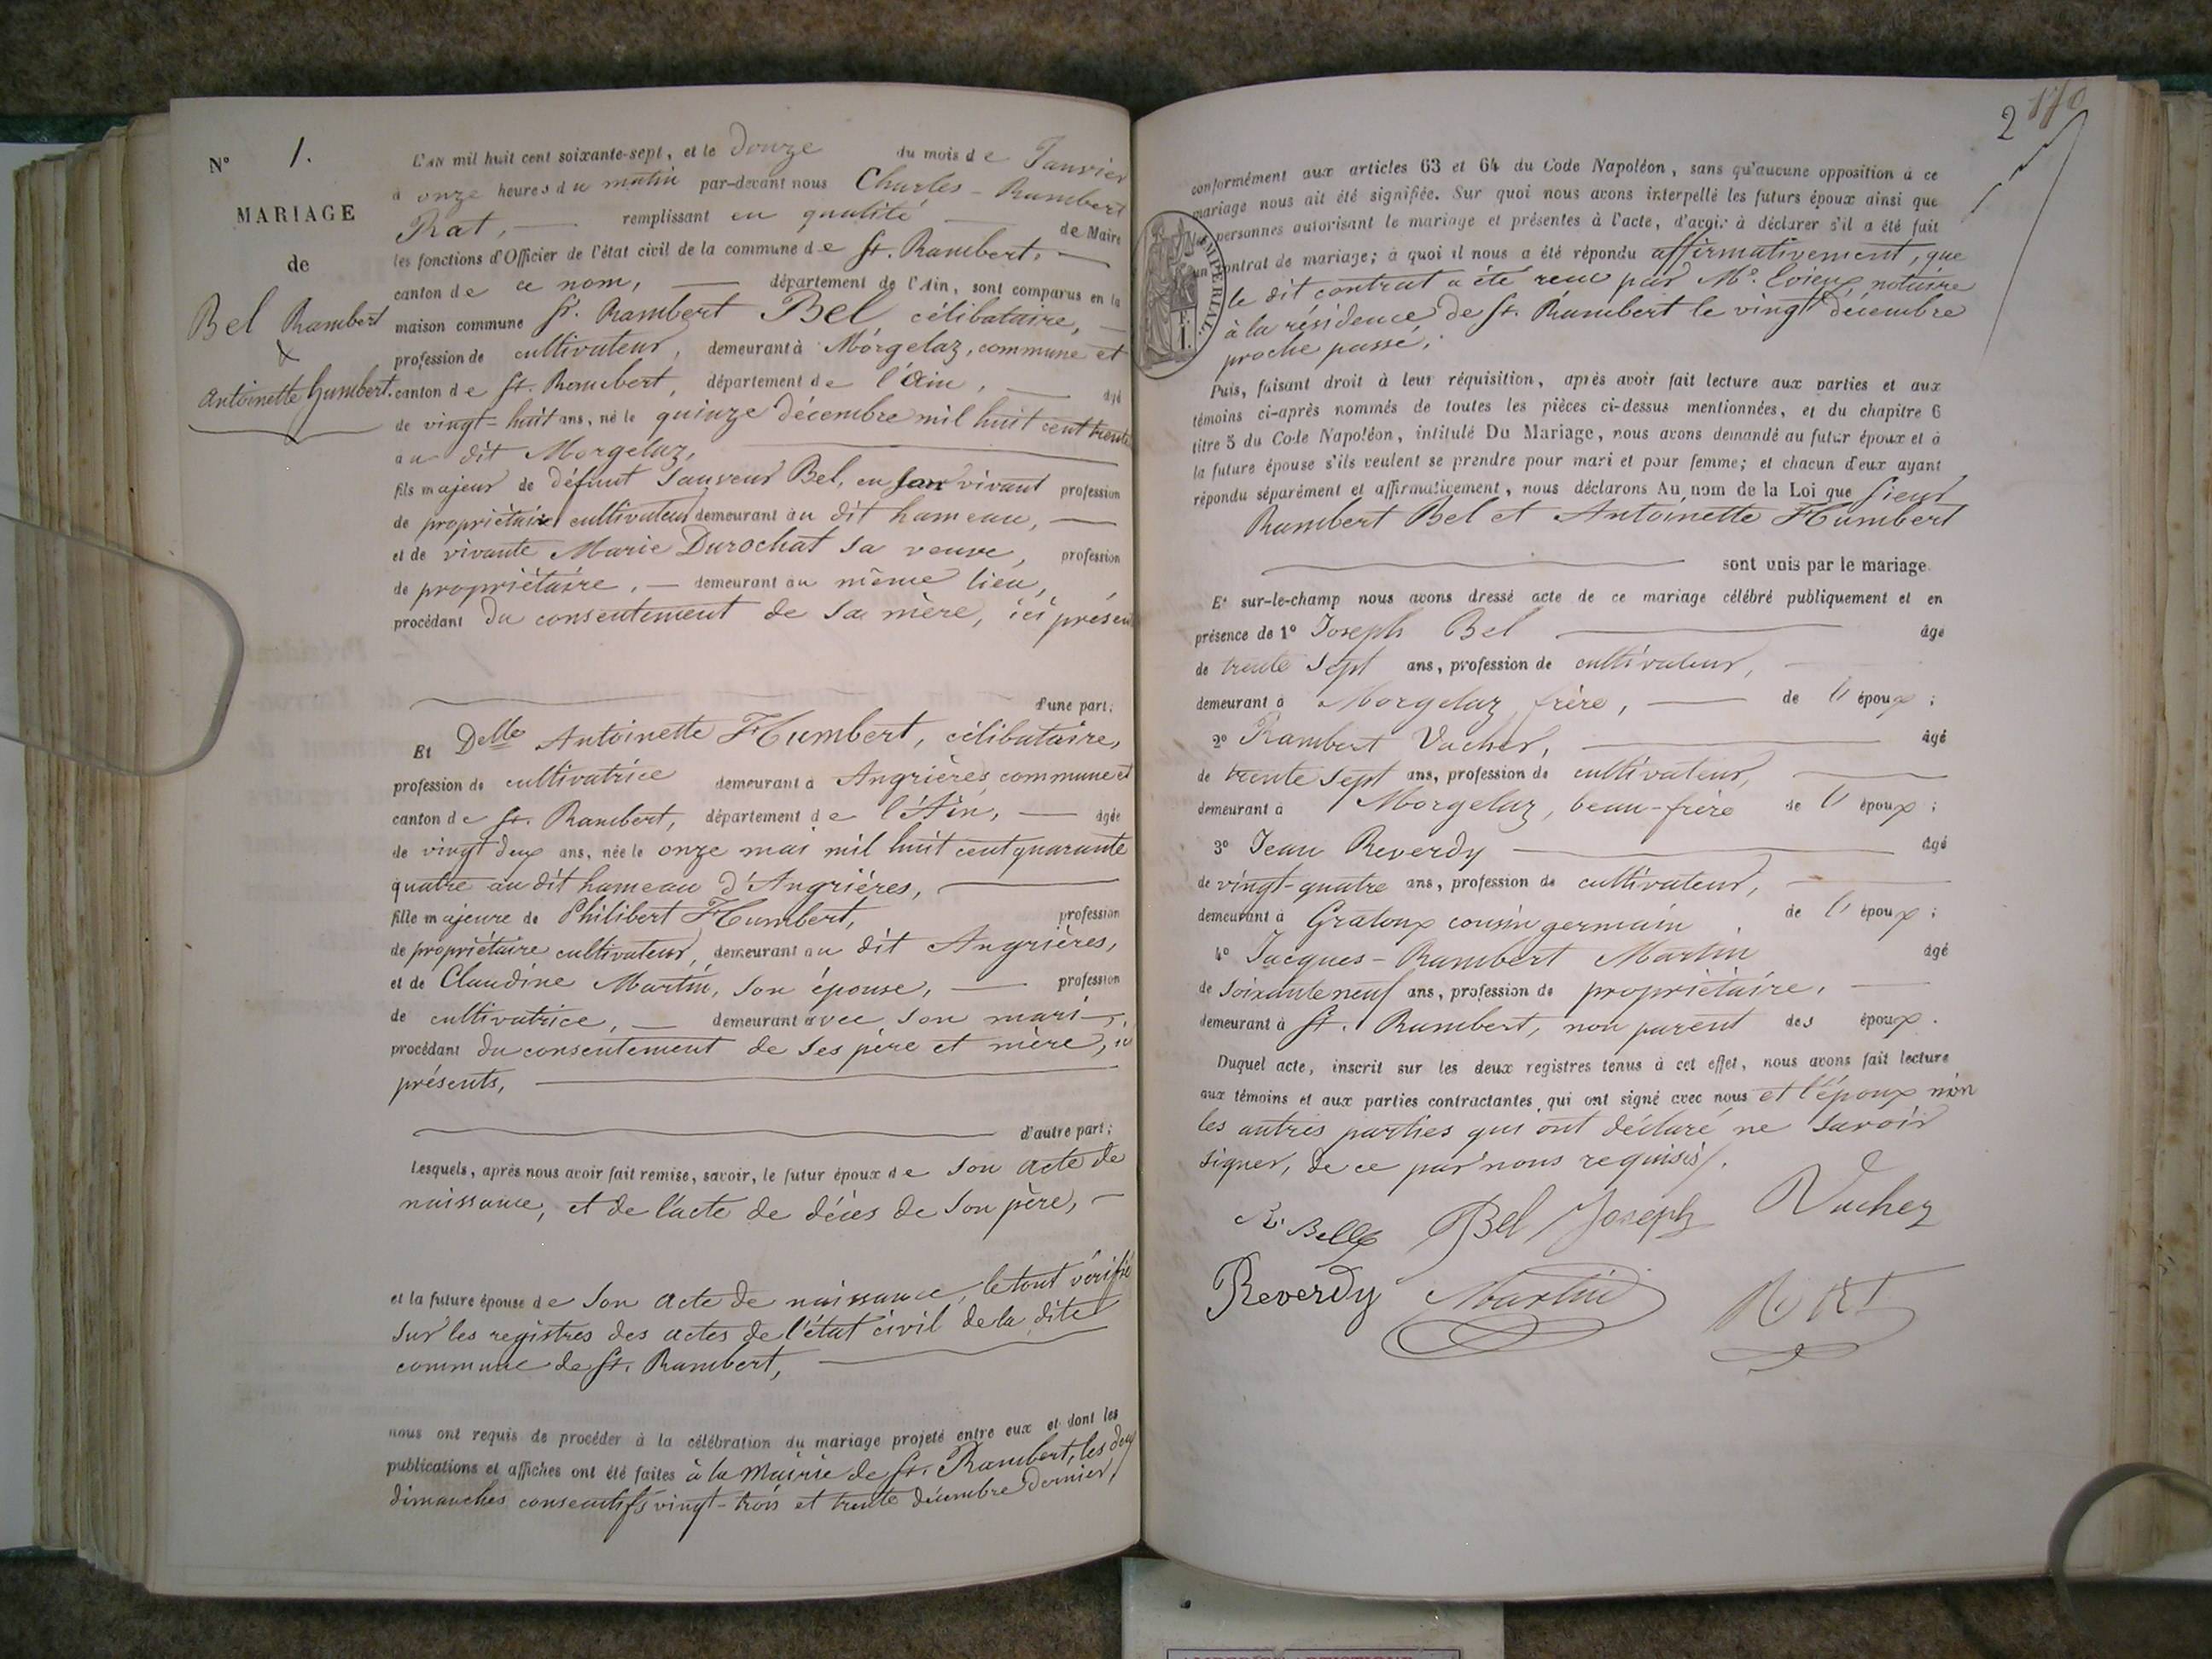 N° 1.
MARIAGE
de
Bel Rambert
&
Antoinette humbert.
L'AN mil huit cent soixante-sept, et le Douze du mois de Janvier
à onze heures du matin par-devant nous Charles-Rambert
Rat, remplissant en qualité de Maire
les fonctions d'Officier de l'état civil de la commune de St. Rambert,
canton de ce nom, département de l'Ain, sont comparus en la
maison commune Sr. Rambert Bel célibataire,
profession de cultivateur, demeurant à Morgelaz, commune et
canton de St. Rambert, département de l'Ain, âgé
de vingt-huit ans, né le quinze décembre mil huit cent trente
au dit Morgelaz,
fils majeur de défunt Sauveur Bel, en son vivant profession
de propriétaire cultivateur demeurant au dit hameau,
et de vivante Marie Durochat sa veuve, profession
de propriétaire, demeurant au même lieu,
procédant du consentement de sa mère, ici présen
d'une part;
Et Delle Antoinette Humbert, célibataire,
profession de cultivatrice demeurant à Angrières commune et
canton de St. Rambert, département de l'Ain, âgée
de vingt deux ans, née le onze mai mil huit cent quarante
quatre au dit hameau d'Angrières,
fille majeure de Philibert Humbert, profession
de propriétaire cultivateur, demeurant au dit Angrières,
et de Claudine Martin, son épouse, profession
de cultivatrice, demeurant avec son mari,
procédant du consentement de ses père et mère, ici
présents,
d'autre part;
Lesquels, après nous avoir fait remise, savoir, le futur époux de son acte de
naissance, et de l'acte de décès de son père,
et la future épouse de son acte de naissance, le tout vérifié
sur les registres des actes de l'état civil de la dite
commune de St. Rambert,
nous ont requis de procéder à la célébration du mariage projeté entre eux et dont les
publications et affiches ont été faites à la Mairie de St. Rambert, les deux
dimanches consecutifs vingt-trois et trente décembre dernier,
2 170
conformément aux articles 63 et 64 du Code Napoléon, sans qu'aucune opposition à ce
mariage nous ait été signifiée. Sur quoi nous avons interpellé les futurs époux ainsi que
personnes autorisant le mariage et présentes à l'acte, d'avoir à déclarer s'il a été fait
un contrat de mariage; à quoi il nous a été répondu affirmativement, que
le dit contrat a été recu par Me. notaire
à la résidence de St. Rambert le vingt décembre
proche passé,
IMPERIAL.
Puis, faisant droit à leur réquisition, après avoir fait lecture aux parties et aux
témoins ci-après nommés de toutes les pièces ci-dessus mentionnées, et du chapitre 6
titre 5 du Code Napoléon, intitulé Du Mariage, nous avons demandé au futur époux et à
la future épouse s'ils veulent se prendre pour mari et pour femme; et chacun d'eux ayant
répondu séparément et affirmativement, nous déclarons Au nom de la Loi que Sieur
Rambert Bel et Antoinette Humbert
sont unis par le mariage.
Et sur-le-champ nous avons dressé acte de ce mariage célébré publiquement et en
présence de 1° Joseph Bel âgé
de trente sept ans, profession de cultivateur,
demeurant à Morgelaz, frère, de l'époux;
2° Rambert Vacher, âgé
de trente sept ans, profession de cultivateur,
demeurant à Morgelaz, beau-frère de l'époux;
3° Jean Reverdy âgé
de vingt-quatre ans, profession de cultivateur,
demeurant à Gratoux cousin germain de l'époux;
4° Jacques-Rambert Martin âgé
de soixante neuf ans, profession de propriétaire,
demeurant à St. Rambert, non parent des époux.
Duquel acte, inscrit sur les deux registres tenus à cet effet, nous avons fait lecture
aux témoins et aux parties contractantes qui ont signé avec nous et l'époux non
les autres parties qui ont déclaré ne savoir
signer, de ce par nous requises.
R. Bell Bel Joseph Vacher
Reverdy Martin R. RAT